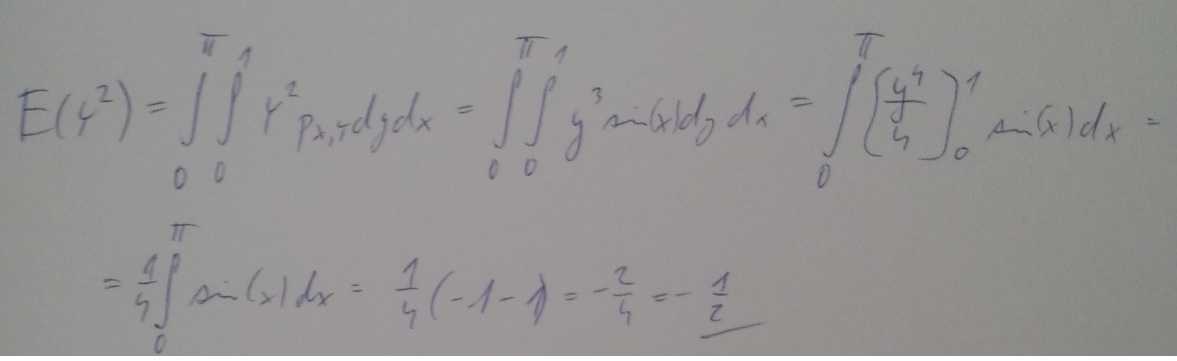 E(Y²) = ∫₀^π ∫₀^1 Y² p_{X,Y} dy dx = ∫₀^π ∫₀^1 y³ sin(x) dy dx = ∫₀^π [y⁴/4]₀^1 sin(x) dx =
= 1/4 ∫₀^π sin(x) dx = 1/4 (-1-1) = -2/4 = -1/2